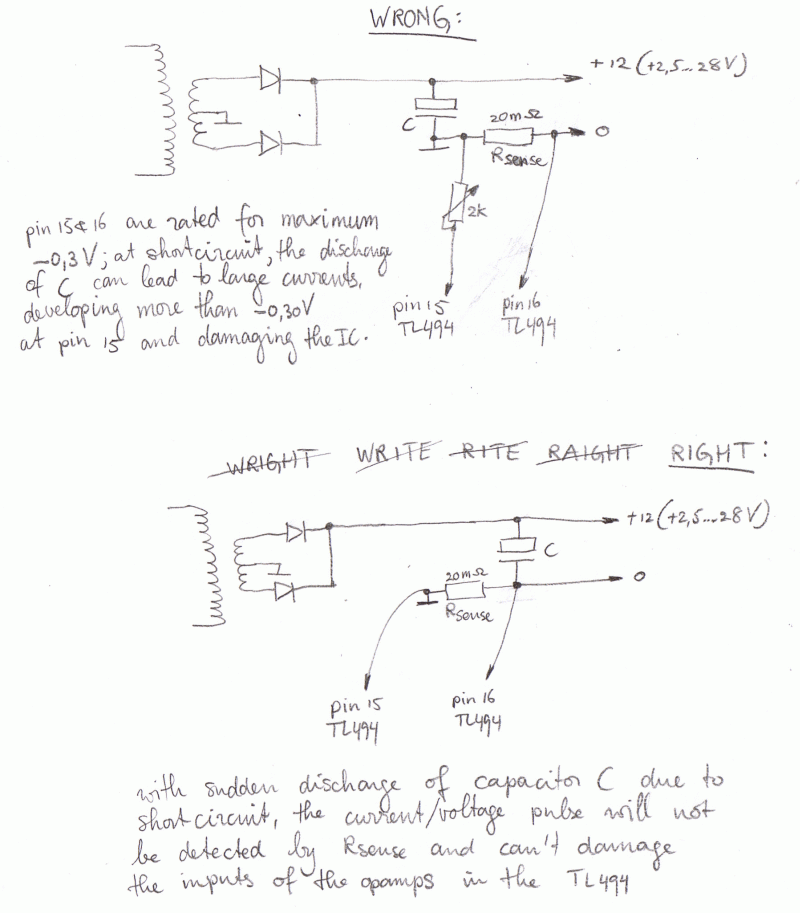 WRONG:
+12 (+2,5...28V)
C
20mΩ
0
Rsense
2k
pin 15 & 16 are rated for maximum
-0,3V; at shortcircuit, the discharge
of C can lead to large currents,
developing more than -0,30V
at pin 15 and damaging the IC.
pin 15
TL494
pin 16
TL494
WRIGHT WRITE RITE RAIGHT RIGHT:
+12 (+2,5...28V)
C
20mΩ
0
Rsense
pin 15
TL494
pin 16
TL494
with sudden discharge of capacitor C due to
shortcircuit, the current/voltage pulse will not
be detected by Rsense and can't damage
the inputs of the opamps in the TL494